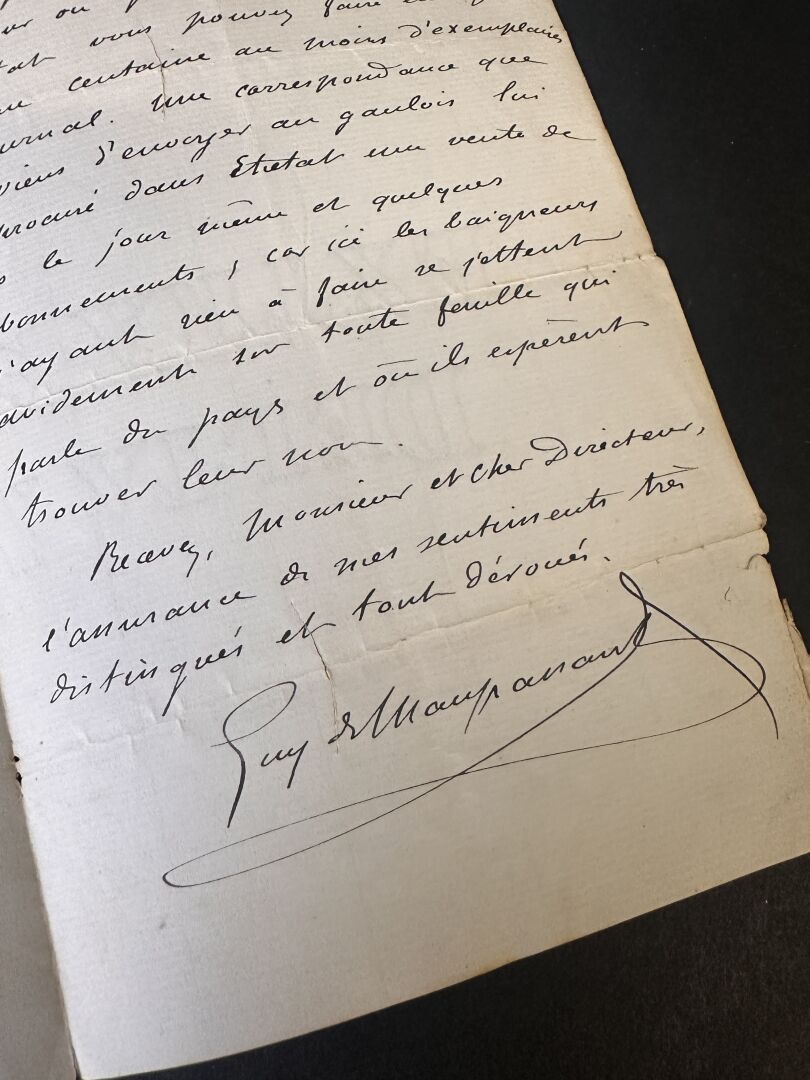 vous pouvez faire
centaine au moins d'exemplaires
Une correspondance que
viens d'envoyer au gaulois lui
procuré dans Etretat une vente de
le jour même et quelques
bonnements, car ici les baigneurs
n'ayant rien à faire se jettent
avidement sur toute feuille qui
parle du pays et où ils espèrent
trouver leur nom.
Recevez, Monsieur et cher Directeur,
l'assurance de mes sentiments très
distingués et tout dévoués.
Guy de Maupassant